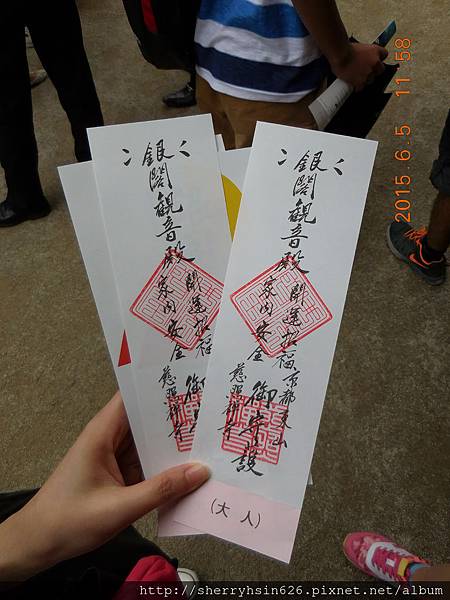 2015 6. 5 11 58
銀閣観音殿
開運招福
家内安全
慈照禅寺
御守
銀閣観音殿
開運招福
家内安全
京都東山
慈照禅寺
御守護
(大人)
http://sherryhsin626.pixnet.net/album